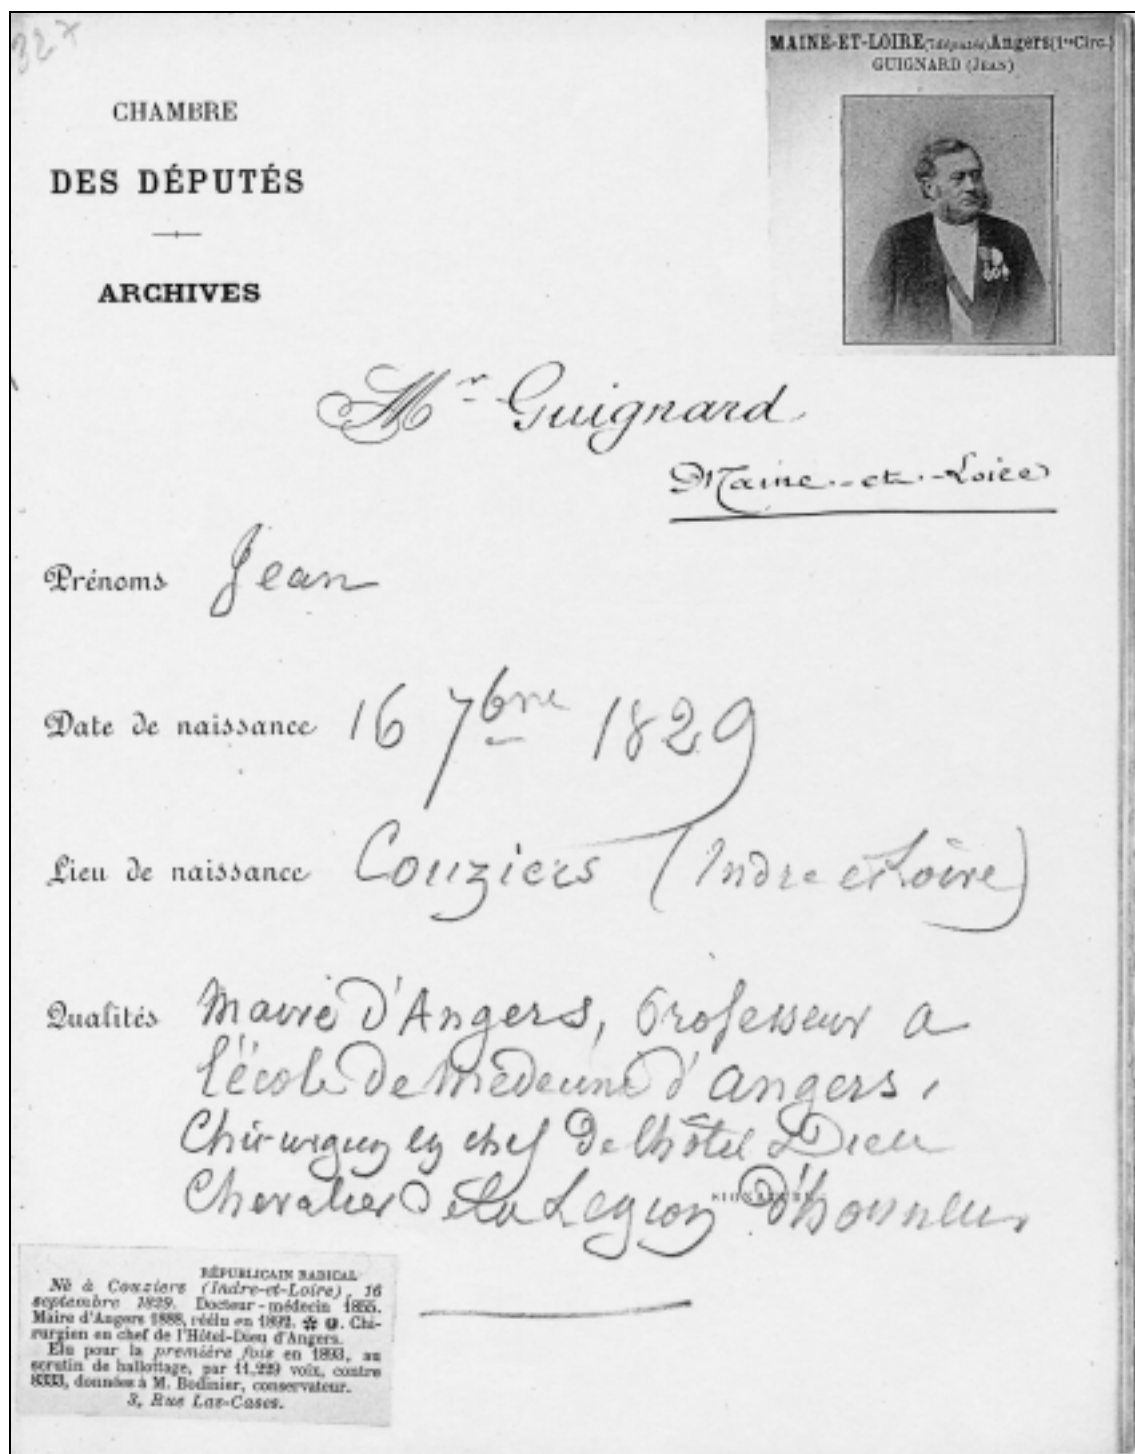 327
MAINE-ET-LOIRE (7 députés) Angers (1re Circ.)
GUIGNARD (JEAN)
CHAMBRE
DES DÉPUTÉS
ARCHIVES
Mr Guignard
Maine-et-Loire
Prénoms Jean
Date de naissance 16 7bre 1829
Lieu de naissance Couziers (Indre et Loire)
Qualités Maire d'Angers, Professeur a
l'école de Médecine d'angers,
Chirurgien en chef de l'hôtel Dieu
SIGNATURE
Chevalier de la Legion d'honneur
RÉPUBLICAIN RADICAL
Né à Couziers (Indre-et-Loire), 16
septembre 1829. Docteur-médecin 1855.
Maire d'Angers 1888, réélu en 1892. Chi-
rurgien en chef de l'Hôtel-Dieu d'Angers.
Elu pour la première fois en 1893, au
scrutin de ballottage, par 11,229 voix, contre
8333, données à M. Bodinier, conservateur.
3, Rue Las-Cases.